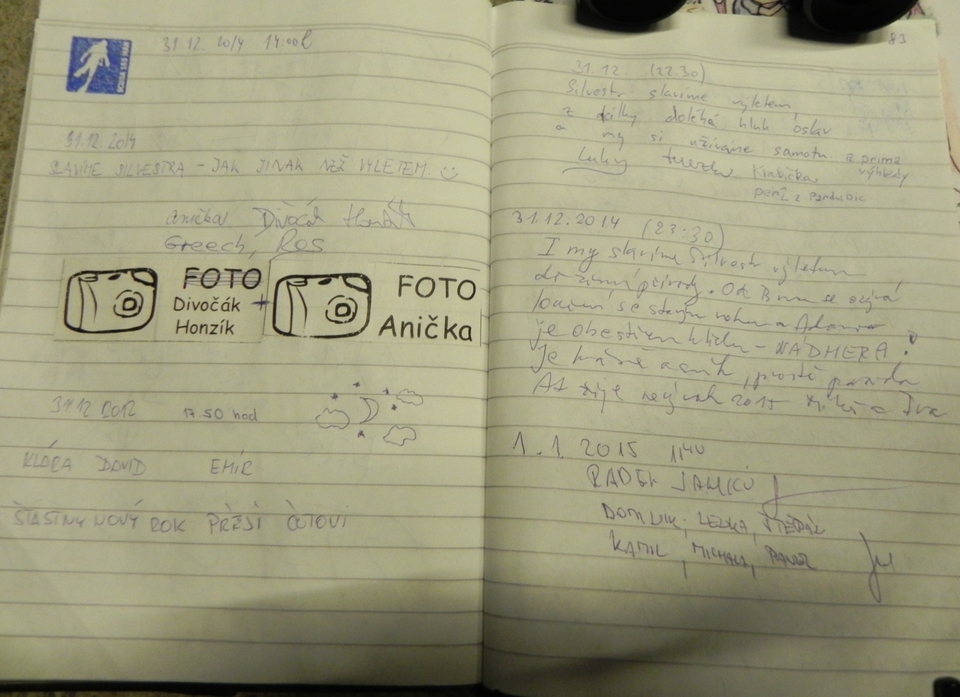 31.12. 2014 14:00h
31.12. 2014
SLAVÍME SILVESTRA - JAK JINAK NEŽ VÝLETEM
Anička Divočák Honzík
Greech, Res
FOTO
Divočák
Honzík
+
FOTO
Anička
31.12 2012 17.50 hod
KLÁRA DAVID EMIR
ŠŤASTNÝ NOVÝ ROK PŘEJÍ
83
31.12. (22 30)
Silvestr slavíme výletem
z dálky doléhá hluk oslav
a my si užíváme samotu z prima výhledy
Luky Krabička
z Pardubic
31.12.2014 (23:30)
I my slavíme Silvestr výletem
do zimní přírody. Od Brna se ozývá
loučení se starým rokem a
je obestřen - NÁDHERA!
Je krásně a, prostě paráda
Ať žije nový rok 2015 a Iva
1.1. 2015 1:40
RADEK
DOMINIK, LENKA, ŠTĚPÁN
KAMIL, MICHALA,